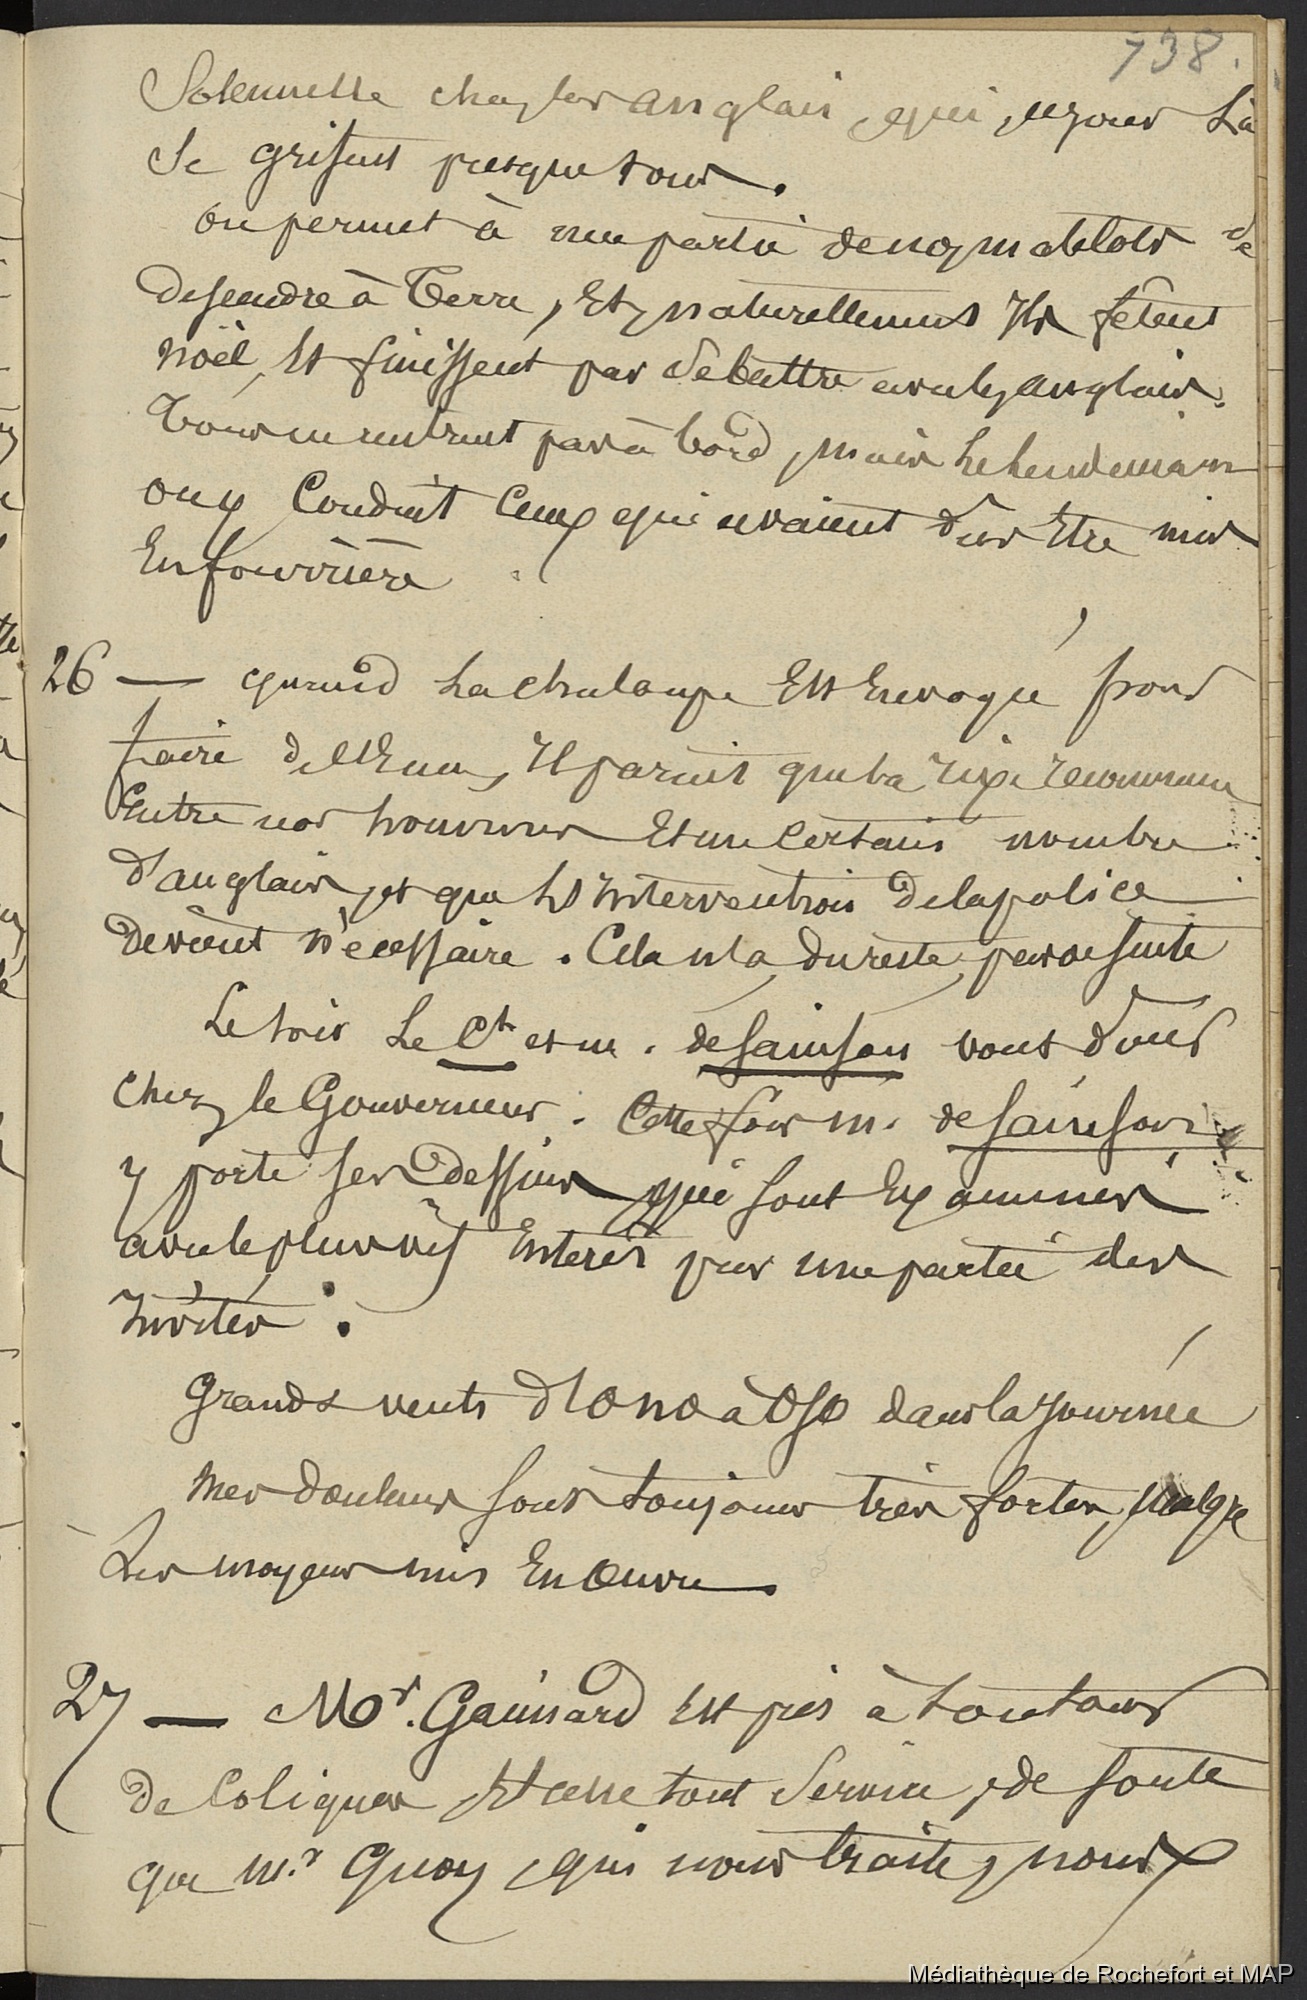 738.
Solennelle chez les anglais, qui, ce jour là
se grisent presque tous.
On permet à une partie de nos matelots de
descendre à Terre, Et, naturellement Ils fêtent
noël, Et finissent par se battre avec les anglais.
Tous ne rentrent pas à bord, mais Le lendemain
on y Conduit Ceux qui avaient dus Etre mis
En fourrière
26 — quand La chaloupe Est Envoyée pour
faire de l'Eau, Il parait que la rixe recommence
Entre nos hommes Et un Certain nombre
d'anglais, et que L'Intervention de la police
devient nécessaire. Cela n'a, du reste, pas de suite
Le soir Le Ct et m. de Sainson vont diner
chez le Gouverneur. Cette fois m. de Sainson
y porte ses dessins qui sont Examinés
avec le plus vif Interet par une partie des
Invités.
Grands vents d'ONO à OSO dans la journée
Mes douleurs sont toujours très fortes, malgré
Les moyens mis En Œuvre.
27 — Mr. Gaimard Est pris à son tour
de Coliques, Et cesse tout Service, de sorte
que mr Quoy, qui nous traite, nous
Médiathèque de Rochefort et MAP